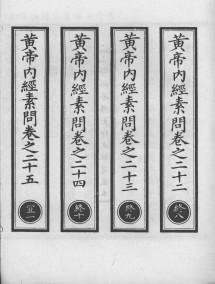 黃帝內經素問卷之二十二
終八
黃帝內經素問卷之二十三
終九
黃帝內經素問卷之二十四
終十
黃帝內經素問卷之二十五
宜一